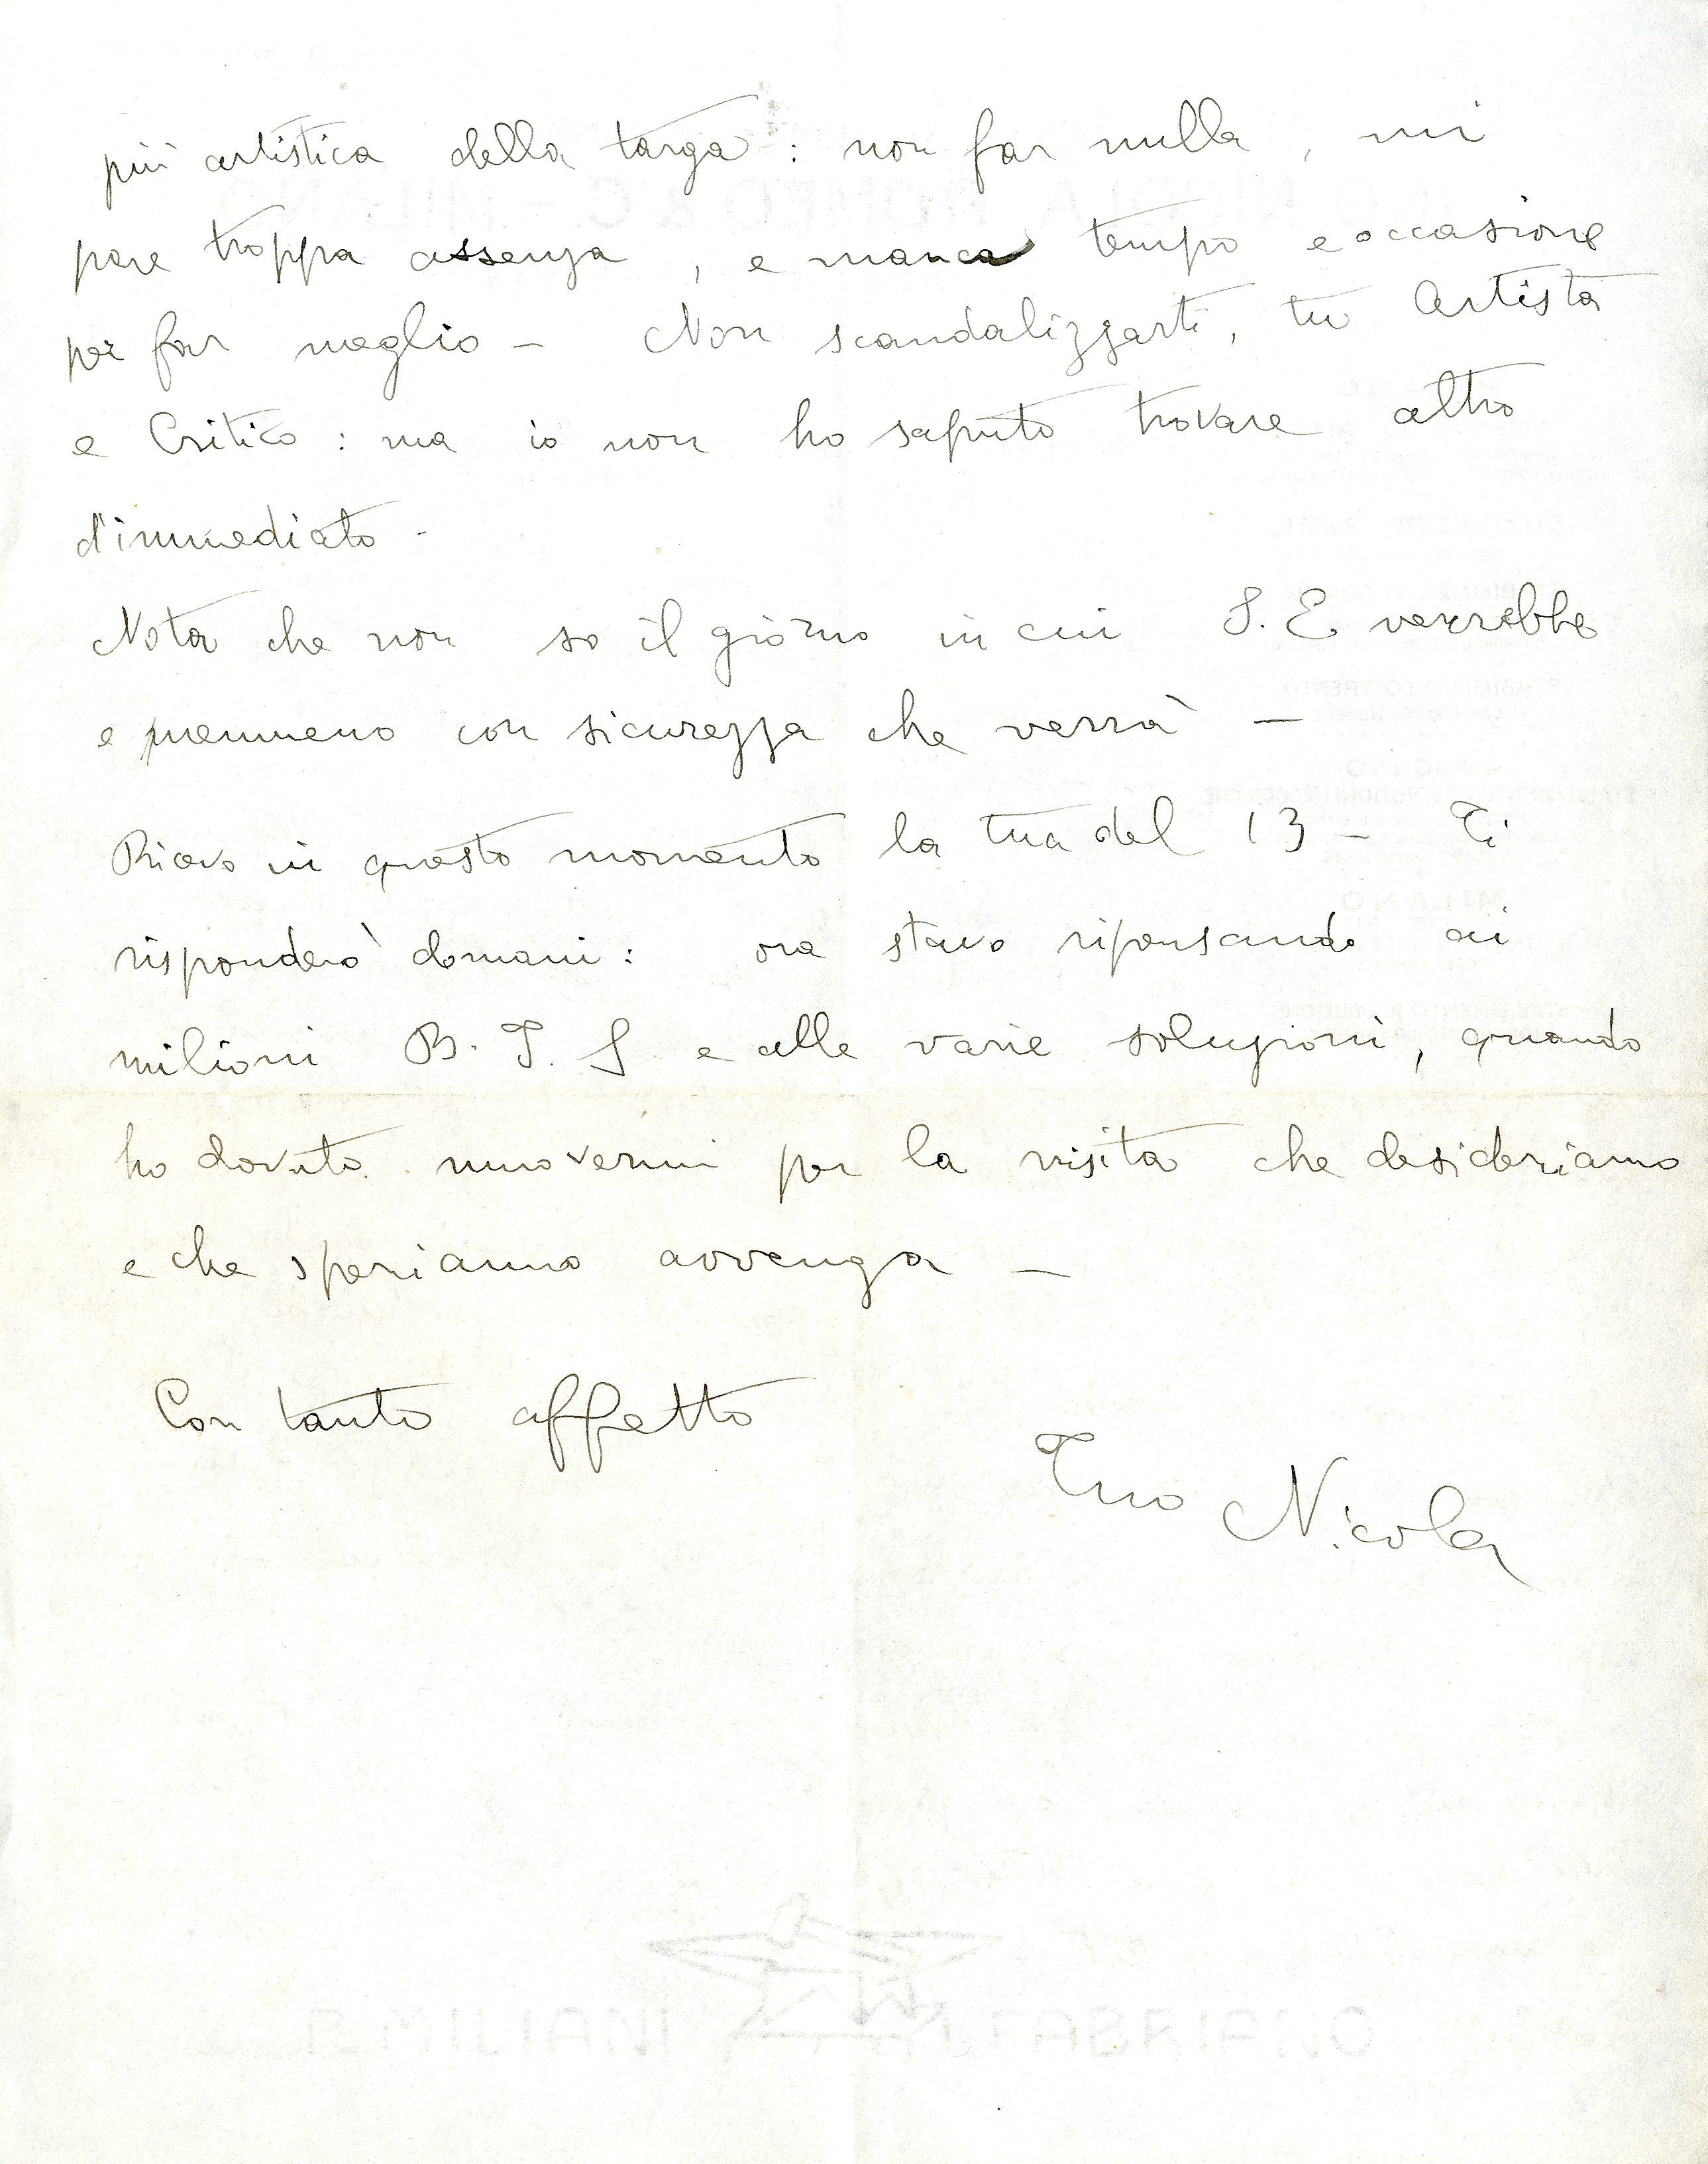 più artistica della targa : non far nulla , mi
pare troppa assenza , e manca tempo e occasione
per far meglio - Non scandalizzarti, tu Artista
e Critico : ma io non ho saputo trovare altro
d'immediato -
Nota che non so il giorno in cui S. E. verrebbe
e nemmeno con sicurezza che verrà -
Ricevo in questo momento la tua del 13 - Ti
risponderò domani : ora stavo ripensando ai
milioni B. T. S e alle varie soluzioni, quando
ho dovuto muovermi per la visita che desideriamo
e che speriamo avvenga -
Con tanto affetto
Tuo Nicola